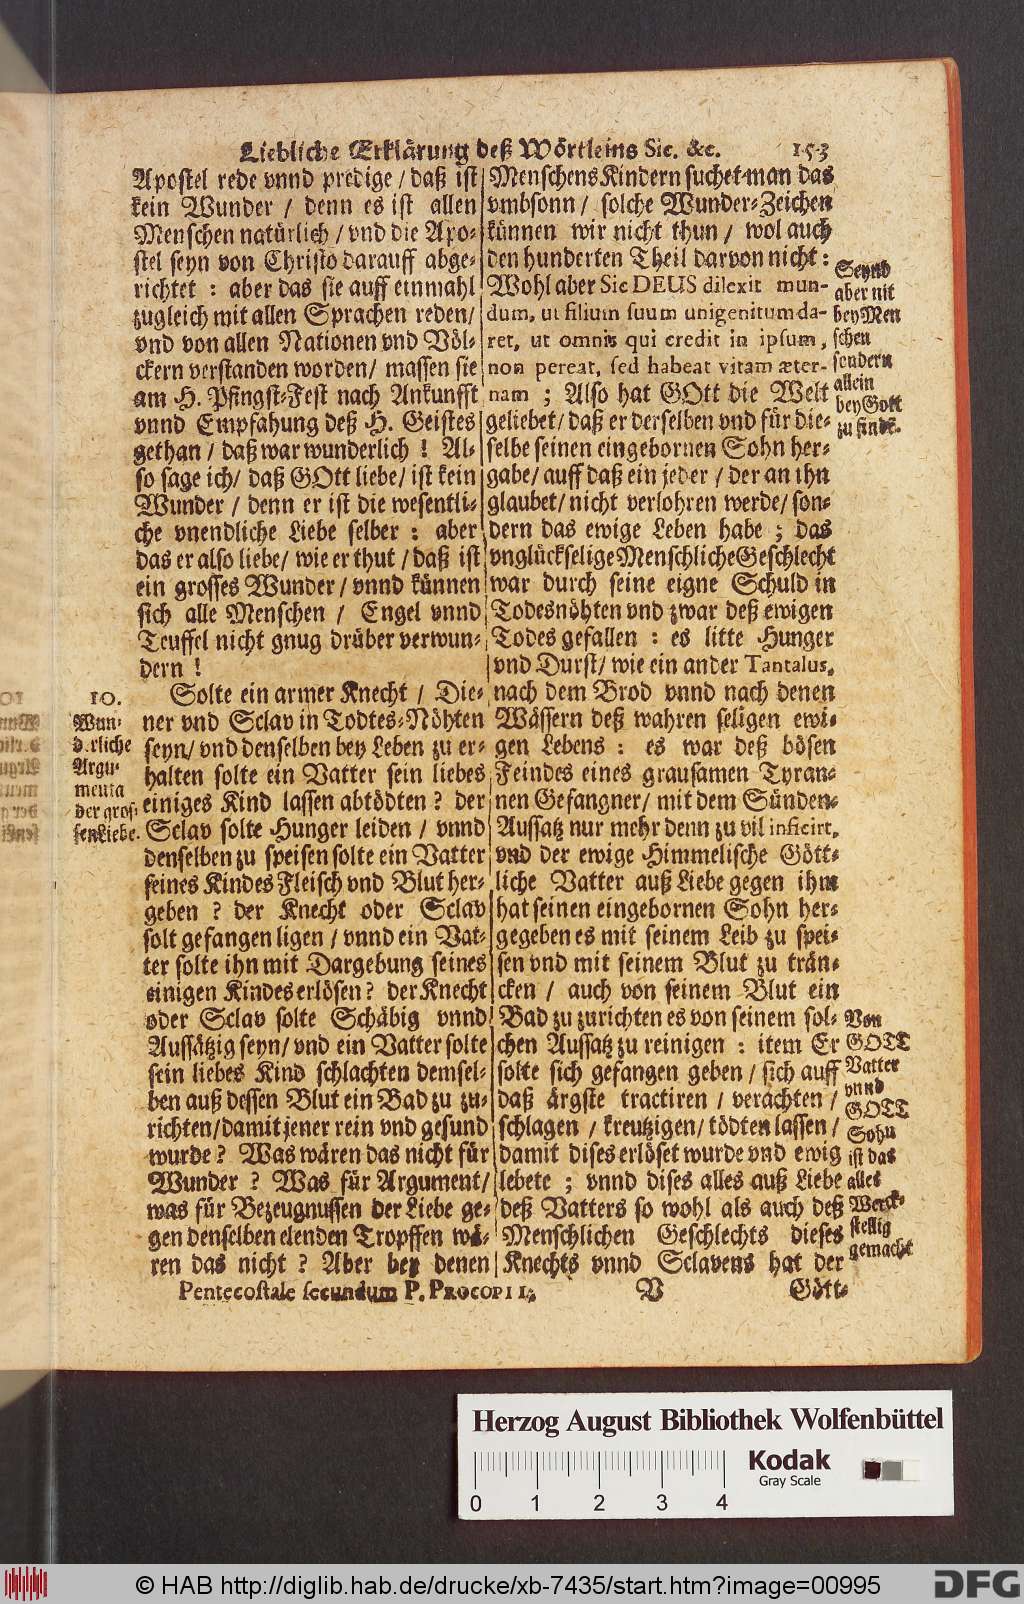 Liebliche Erklärung deß Wörtleins Sic. &c. 153
Apostel rede vnnd predige / daß ist
kein Wunder / denn es ist allen
Menschen natürlich / vnd die Apo-
stel seyn von Christo darauff abge-
richtet : aber das sie auff einmahl
zugleich mit allen Sprachen reden /
vnd von allen Nationen vnd Völ-
ckern verstanden worden / massen sie
am H. Pfingst-Fest nach Ankunfft
vnnd Empfahung deß H. Geistes
gethan / daß war wunderlich ! Al-
so sage ich / daß GOtt liebe / ist kein
Wunder / denn er ist die wesentli-
che vnendliche Liebe selber : aber
das er also liebe / wie er thut / daß ist
ein grosses Wunder / vnnd können
sich alle Menschen / Engel vnnd
Teuffel nicht gnug drüber verwun-
dern !
10.
Wun-
d.rliche
Argu-
menta
der gros-
sen Liebe.
Solte ein armer Knecht / Die-
ner vnd Sclav in Todtes-Nöhten
seyn / vnd denselben bey Leben zu er-
halten solte ein Vatter sein liebes
einiges Kind lassen abtödten ? der
Sclav solte Hunger leiden / vnnd
denselben zu speisen solte ein Vatter
seines Kindes Fleisch vnd Blut her-
geben ? der Knecht oder Sclav
solt gefangen ligen / vnnd ein Vat-
ter solte ihn mit Dargebung seines
einigen Kindes erlösen ? der Knecht
oder Sclav solte Schäbig vnnd
Aussätzig seyn / vnd ein Vatter solte
sein liebes Kind schlachten demsel-
ben auß dessen Blut ein Bad zu zu-
richten / damit jener rein vnd gesund
wurde ? Was wären das nicht für
Wunder ? Was für Argument /
was für Bezeugnussen der Liebe ge-
gen denselben elenden Tropffen wä-
ren das nicht ? Aber bey denen
Menschens Kindern suchet man das
vmbsonn / solche Wunder-Zeichen
können wir nicht thun / wol auch
den hunderten Theil darvon nicht :
Wohl aber Sic DEUS dilexit mun-
dum, ut filium suum unigenitum da-
ret, ut omnis qui credit in ipsum,
non pereat, sed habeat vitam æter-
nam ; Also hat GOtt die Welt
geliebet / daß er derselben vnd für die-
selbe seinen eingebornen Sohn her-
gabe / auff daß ein jeder / der an ihn
glaubet / nicht verlohren werde / son-
dern das ewige Leben habe ; das
vnglückselige Menschliche Geschlecht
war durch seine eigne Schuld in
Todesnöhten vnd zwar deß ewigen
Todes gefallen : es litte Hunger
vnd Durst / wie ein ander Tantalus,
nach dem Brod vnnd nach denen
Wässern deß wahren seligen ewi-
gen Lebens : es war deß bösen
Feindes eines grausamen Tyran-
nen Gefangner / mit dem Sünden-
Aussatz nur mehr denn zu vil inficirt,
vnd der ewige Himmelische Gött-
liche Vatter auß Liebe gegen ihm
hat seinen eingebornen Sohn her-
gegeben es mit seinem Leib zu spei-
sen vnd mit seinem Blut zu trän-
cken / auch von seinem Blut ein
Bad zu zurichten es von seinem sol-
chen Aussatz zu reinigen : item Er
solte sich gefangen geben / sich auff
daß ärgste tractiren / verachten /
schlagen / kreutzigen / tödten lassen /
damit dises erlöset wurde vnd ewig
lebete ; vnnd dises alles auß Liebe
deß Vatters so wohl als auch deß
Menschlichen Geschlechts dieses
Knechts vnnd Sclavens hat der
Seynd
aber nit
bey Men
schen
sondern
allein
bey Gott
zu finde.
Von
GOTT
Vatter
vnnd
GOTT
Sohn
ist das
alles
Werck-
stellig
gemacht
Pentecostale secundum P. PROCOPII I. V Gött-
Herzog August Bibliothek Wolfenbüttel
Kodak
Gray Scale
0 1 2 3 4
© HAB http://diglib.hab.de/drucke/xb-7435/start.htm?image=00995
DFG